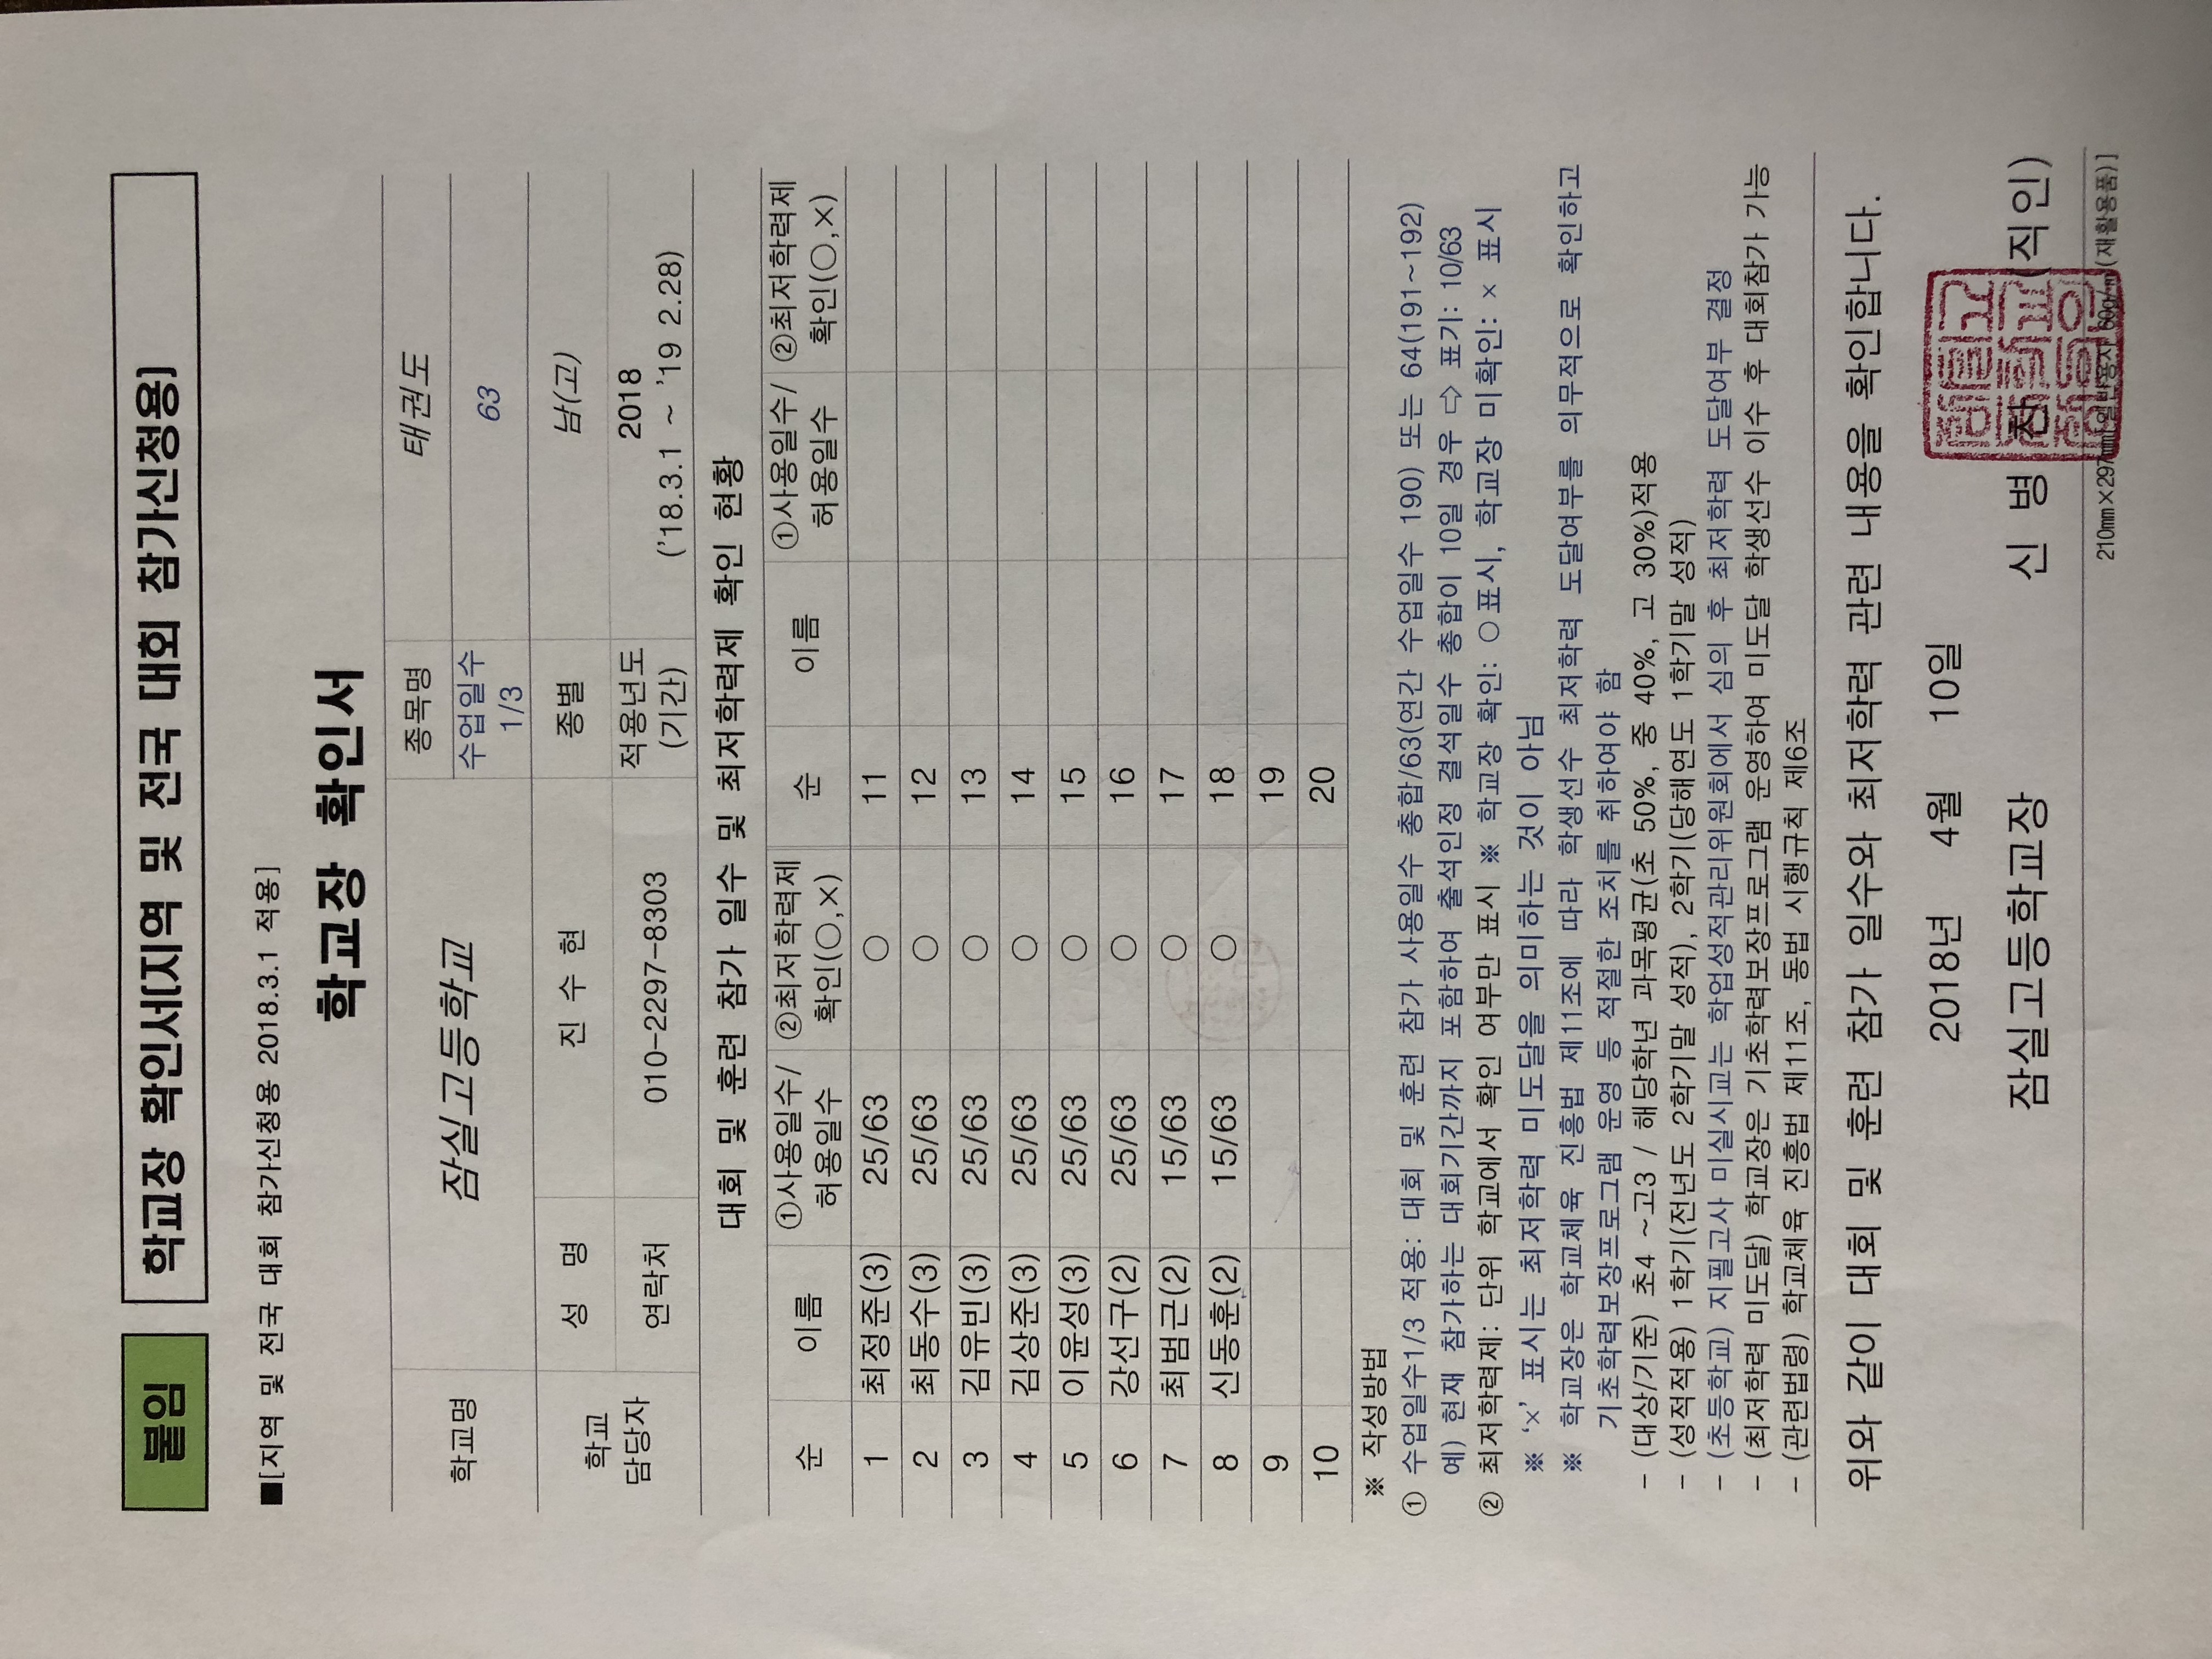 붙임
학교장 확인서(지역 및 전국 대회 참가신청용)
■[지역 및 전국 대회 참가신청용 2018.3.1 적용]
학교장 확인서
학교명 잠실고등학교 종목명 태권도
수업일수 1/3 63
학교 담당자 성 명 진 수 현 종별 남(고)
연락처 010-2297-8303 적용년도 (기간) 2018 ('18.3.1 ~ '19 2.28)
대회 및 훈련 참가 일수 및 최저학력제 확인 현황
순 이름 ①사용일수/허용일수 ②최저학력제 확인(○,×) 순 이름 ①사용일수/허용일수 ②최저학력제 확인(○,×)
1 최정준(3) 25/63 ○ 11
2 최동수(3) 25/63 ○ 12
3 김유빈(3) 25/63 ○ 13
4 김상준(3) 25/63 ○ 14
5 이윤성(3) 25/63 ○ 15
6 강선구(2) 25/63 ○ 16
7 최범근(2) 15/63 ○ 17
8 신동훈(2) 15/63 ○ 18
9 19
10 20
※ 작성방법
① 수업일수1/3 적용: 대회 및 훈련 참가 사용일수 총합/63(연간 수업일수 190) 또는 64(191~192)
예) 현재 참가하는 대회기간까지 포함하여 출석인정 결석일수 총합이 10일 경우 ⇨ 표기: 10/63
② 최저학력제: 단위 학교에서 확인 여부만 표시 ※ 학교장 확인: ○표시, 학교장 미확인: × 표시
※ '×' 표시는 최저학력 미도달을 의미하는 것이 아님
※ 학교장은 학교체육 진흥법 제11조에 따라 학생선수 최저학력 도달여부를 의무적으로 확인하고
기초학력보장프로그램 운영 등 적절한 조치를 취하여야 함
- (대상/기준) 초4 ~고3 / 해당학년 과목평균(초 50%, 중 40%, 고 30%)적용
- (성적적용) 1학기(전년도 2학기말 성적), 2학기(당해연도 1학기말 성적)
- (초등학교) 지필고사 미실시교는 학업성적관리위원회에서 심의 후 최저학력 도달여부 결정
- (최저학력 미도달) 학교장은 기초학력보장프로그램 운영하여 미도달 학생선수 이수 후 대회참가 가능
- (관련법령) 학교체육 진흥법 제11조, 동법 시행규칙 제6조
위와 같이 대회 및 훈련 참가 일수와 최저학력 관련 내용을 확인합니다.
2018년 4월 10일
잠실고등학교장 신 병 (직인)
210㎜×297㎜(일반용지 60g/㎡(재활용품)]